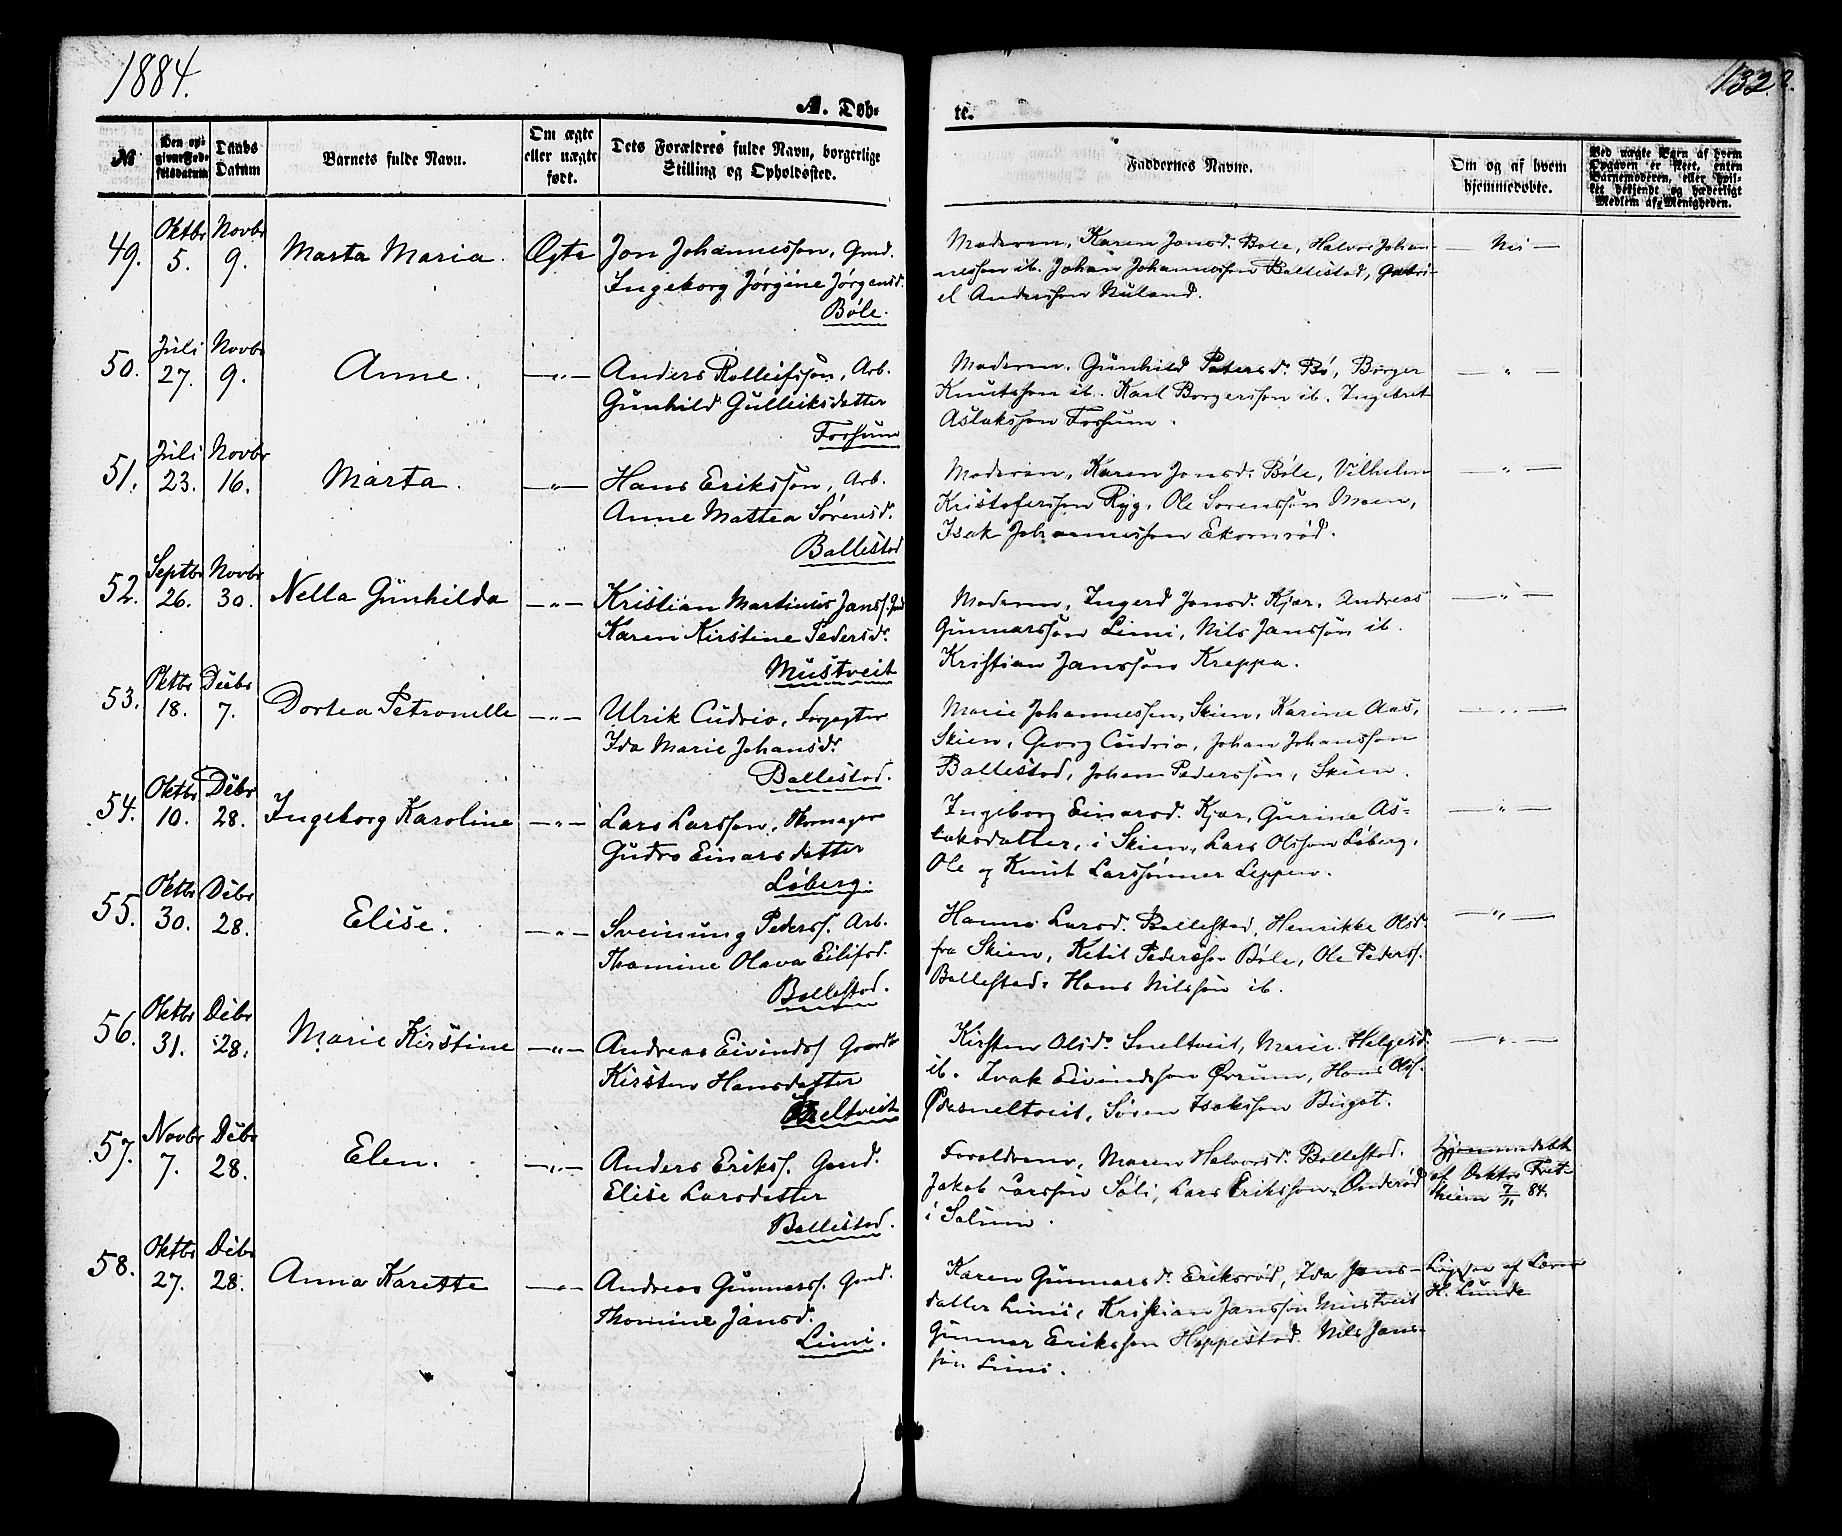 1884.
132.
A. Døb-
te.
№
Den op-
givne Fød-
selsdatum
Daabs
Datum
Barnets fulde Navn.
Om ægte
eller uægte
født.
Dets Forældres fulde Navn, borgerlige
Stilling og Opholdssted.
Faddernes Navne.
Om og af hvem
hjemmedøbte.
Ved uægte Barn af hvem
Opgaven er skeet, enten
Barnemoderen, eller hvil-
ket bekjendt og hæderligt
Medlem af Menigheden.
49.
Oktbr
5.
Novbr
9.
Marta Maria.
Ægte
Jon Johannessøn, Gmd.
Ingeborg Jørgine Jørgensd.
Bøle.
Moderen, Karen Jonsd. Bøle, Halvor Johan-
nessøn ib. Johan Johannessøn Ballestad, Gabri-
el Anderssøn Nuland.
— Nei —
50.
Juli
27.
Novbr
9.
Anne.
— „ —
Anders Rolleifssøn, Arb.
Gunhild Gulleiksdatter
Fossum
Moderen, Gunhild Petersd. Bø, Børger
Knutssøn ib. Karl Borgerssøn ib. Ingebret
Aslakssøn Fossum.
— „ —
51.
Juli
23.
Novbr
16.
Marta.
— „ —
Hans Erikssøn, Arb.
Anne Mattea Sørensd.
Ballestad
Moderen, Karen Jonsd. Bøle, Vilhelm
Kristoferssøn Ryg, Ole Sørenssøn Moen,
Isak Johannessøn Ekornrød.
— „ —
52.
Septbr
26.
Novbr
30.
Nella Gunhilda
— „ —
Kristian Martinus Janss. Gmd
Karen Kirstine Pedersd.
Mustveit
Moderen, Ingerd Jonsd. Kjær, Andreas
Gunnarssøn Limi, Nils Janssøn ib.
Kristian Janssøn Kreppa.
— „ —
53.
Oktbr
18.
Decbr
7.
Dortea Petronelle
— „ —
Ulrik Cudrio, Forpagter
Ida Marie Johansd.
Ballestad.
Marie Johannessen, Skien, Karine Aas,
Skien, Georg Cudrio, Johan Johanssøn
Ballestad, Johan Pederssøn, Skien.
— „ —
54.
Oktbr
10.
Débr
28.
Ingeborg Karoline
— „ —
Lars Larssøn,
Gudro Einarsdatter
Løberg.
Ingeborg Einarsd. Kjær, Gurine As-
laksdatter, i Skien, Lars Olssøn Løberg,
Ole og Knut Larssønner Leppen.
— „ —
55.
Oktbr
30.
Débr
28.
Elise.
— „ —
Sveinung Pederss. Arb.
Thomine Olava Eilifsd.
Ballestad.
Hanna Larsd. Ballestad, Henrikke Olsd.
fra Skien, Ketil Pederssøn Bøle, Ole Pederss.
Ballestad, Hans Nilssøn ib.
— „ —
56.
Oktbr
31.
Débr
28.
Marie Kirstine
— „ —
Andreas Eivinds
Kirsten Hansdatter
Sneltveit
Kirsten Olsd. Sneltveit, Marie Helgesd.
ib. Isak Eivindssøn Ørrum, Hans Olss.
Søren Isakssøn
— „ —
57.
Novbr
7.
Débr
28.
Elen.
— „ —
Anders Erikss. Gmd.
Elise Larsdatter
Ballestad.
Forældrene, Maren Halvorsd. Ballestad.
Jakob Larssøn Søli, Lars Erikssøn Onderød
i Solum.
Hjemmedøbt
af Doktor Fret-
heim 7/11 84.
58.
Oktbr
27.
Débr
28.
Anna Karette
— „ —
Andreas Gunnarss. Gmd.
Thomine Jansd.
Limi.
Karen Gunnarsd. Eriksrød, Ida Jans-
datter Limi, Kristian Janssøn Mustveit
Gunnar Erikssøn Hoppestad. Nils Jans-
søn Limi.
af
H. Lunde